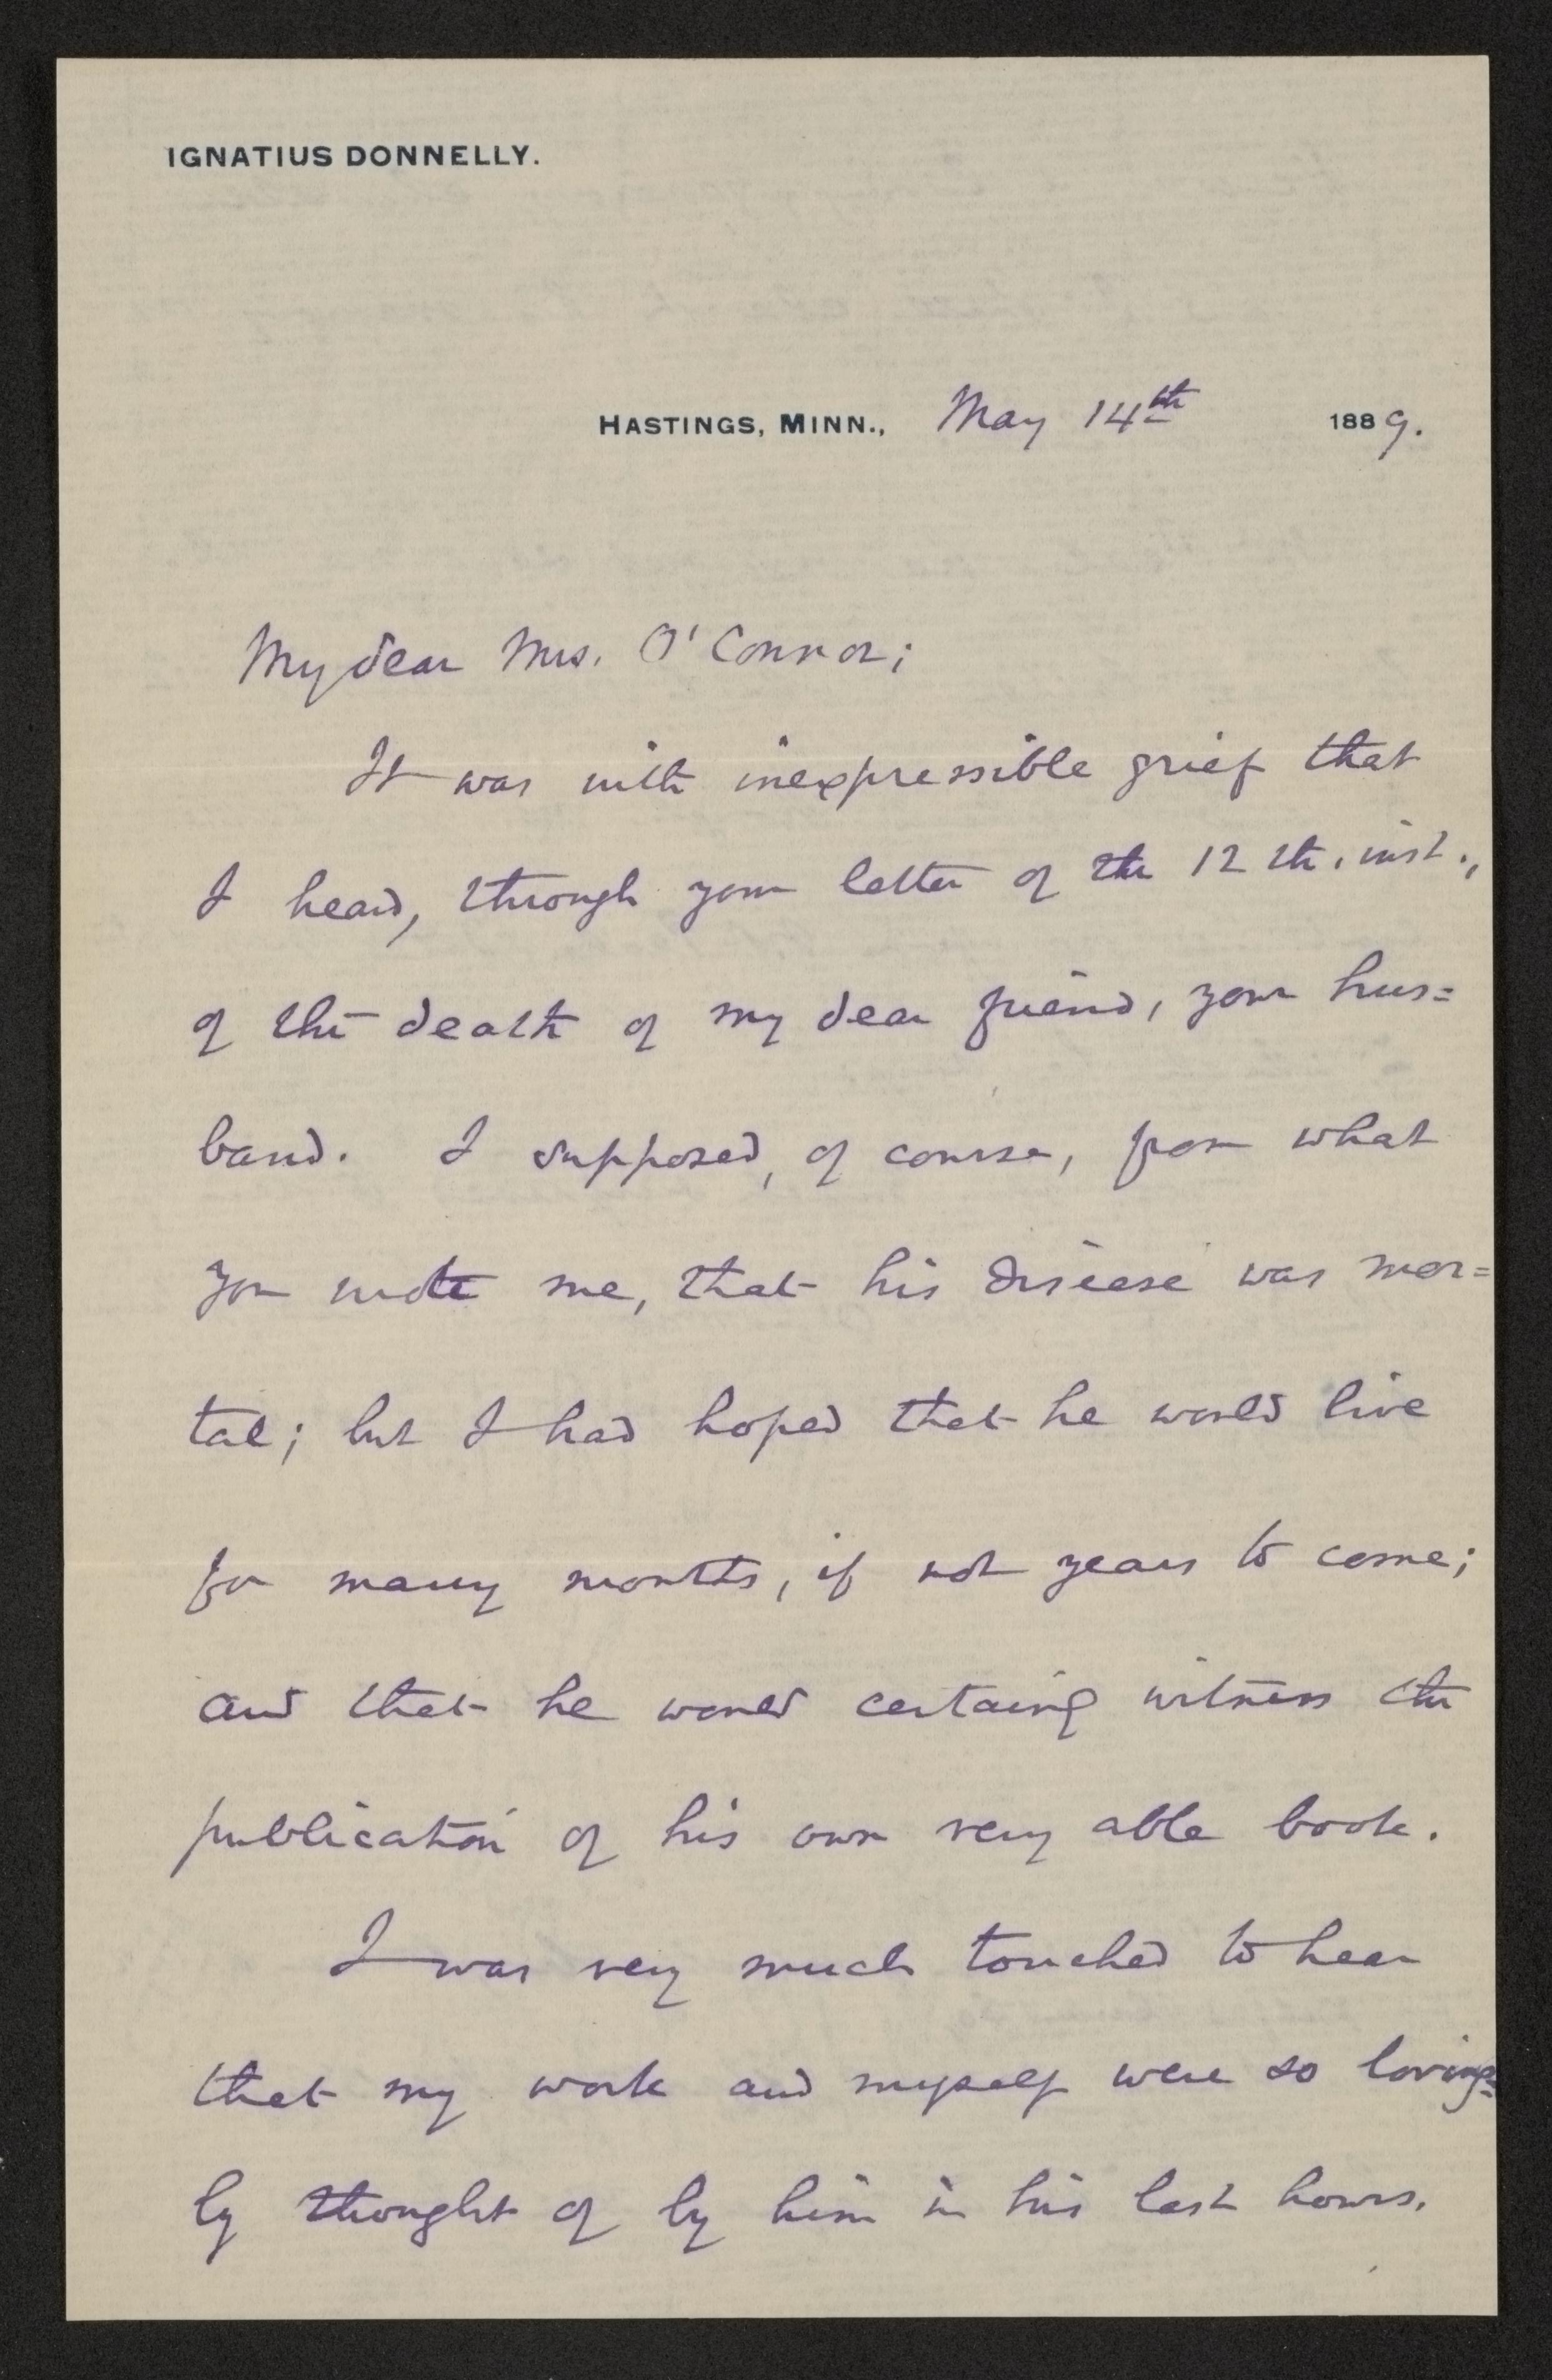 IGNATIUS DONNELLY.
HASTINGS, MINN., May 14th 1889.
My dear Mrs. O'Connor;
It was with inexpressible grief that
I heard, through your letter of the 12th. inst.,
of the death of my dear friend, your hus=
band. I supposed, of course, from what
you wrote me, that his disease was mor=
tal; but I had hoped that he would live
for many months, if not years to come;
and that he would certainly witness the
publication of his own very able book.
I was very much touched to hear
that my work and myself were so loving=
ly thought of by him in his last hours.